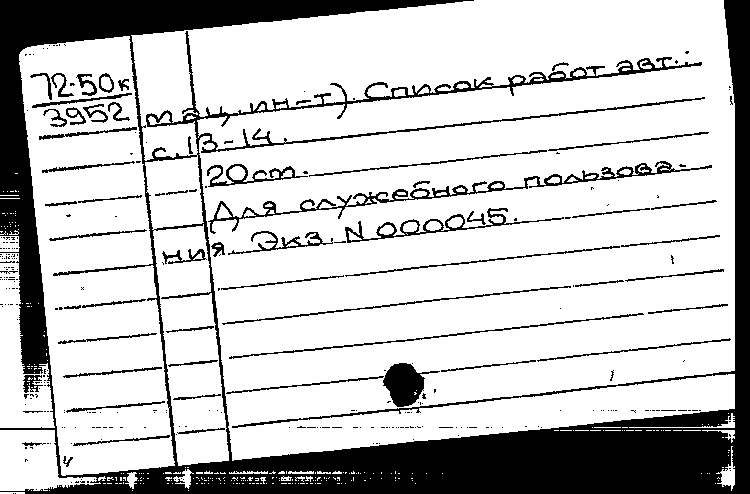 72-50к
3952
мац. ин-т). Список работ авт.:
с. 13-14.
20 cm.
Для служебного пользова-
ния. Экз. N 000045.